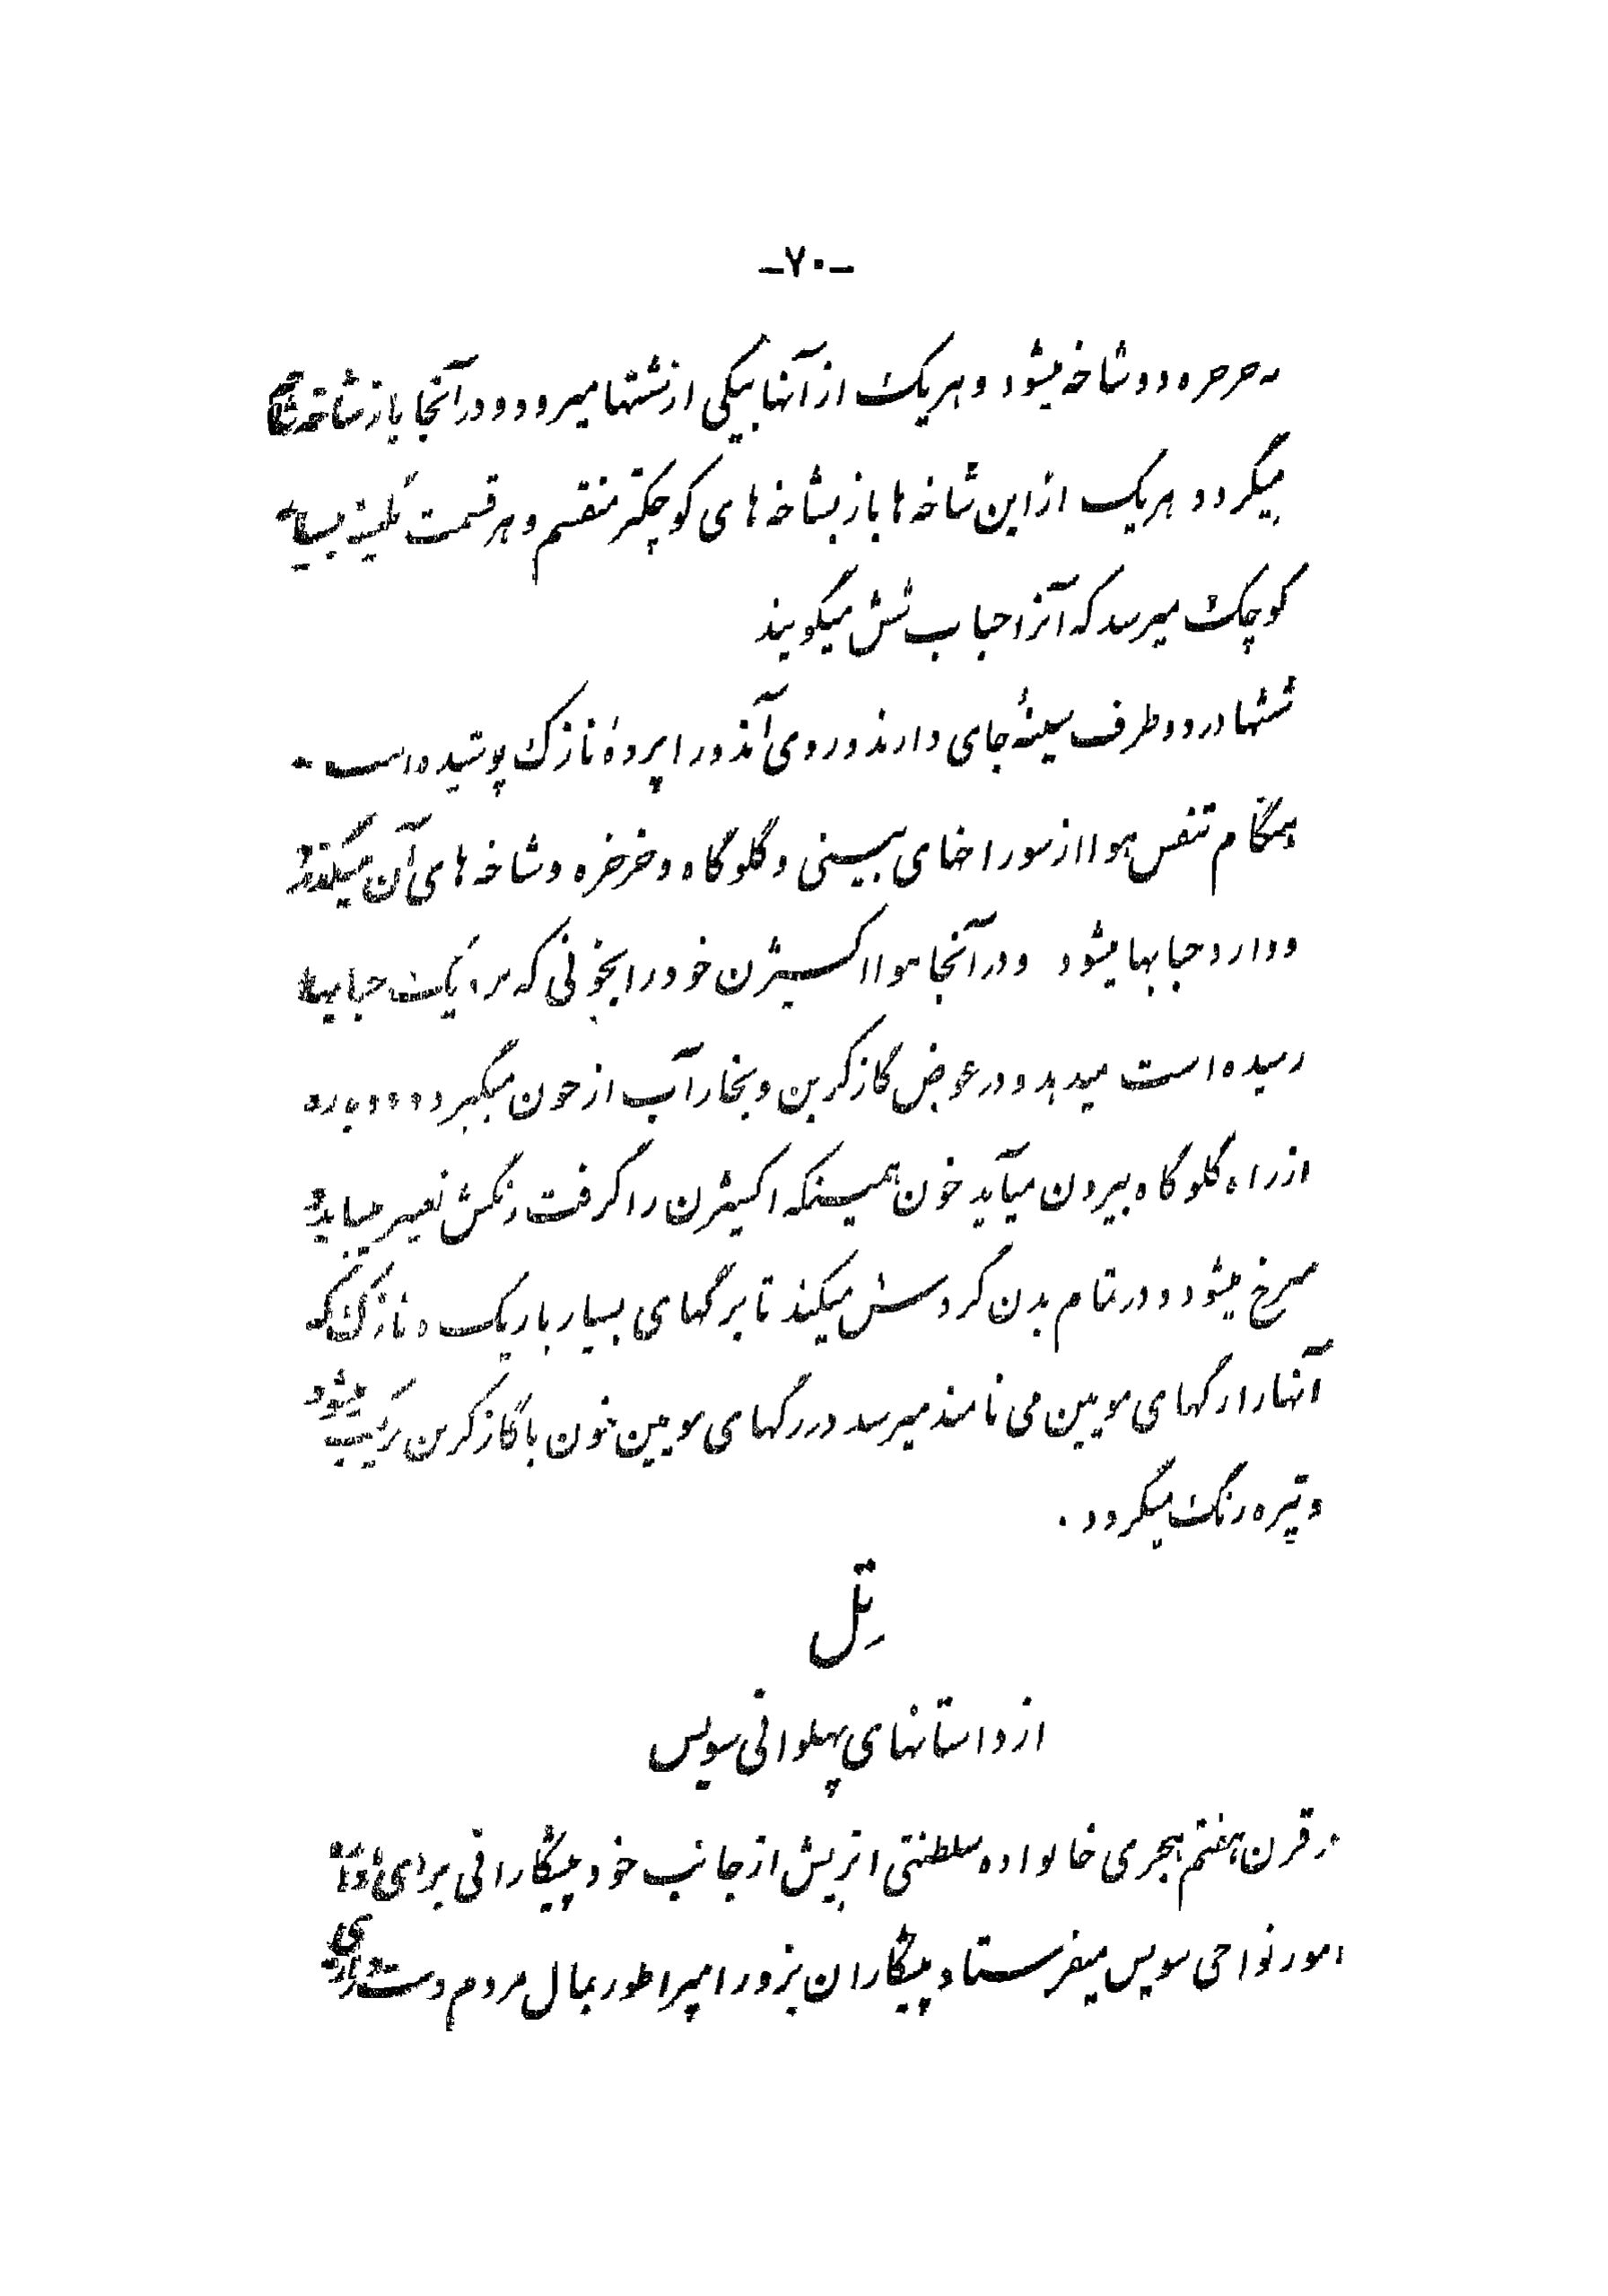 -۷۰-
خرخره دو شاخه میشود و هر یک از آنها بیکی از ششها میرود و در آنجا باز شاخه شاخه
میگردد هر یک از این شاخه ها باز بشاخه های کوچکتر منقسم و هر قسمت بکیسهٔ بسیار
کوچک میرسد که آنرا حباب شش میگویند
ششها در دو طرف سینهٔ جای دارند و روی آندو را پردهٔ نازک پوشیده است -
هنگام تنفس هوا از سوراخای بینی و گلوگاه و خرخره و شاخه های آن میگذرد
و وارد حبابها میشود و در آنجا هوا اکسیژن خود را بخونی که نزدیک حبابها
رسیده است میدهد و در عوض گاز کربن و بخار آب از خون میگیرد و دوباره
از راه گلوگاه بیرون میآید خون همینکه اکسیژن را گرفت رنگش تغییر مییابد و
سرخ میشود و در تمام بدن گردش میکند تا برگهای بسیار باریک و نازک که
آنها را رگهای مویین می نامند میرسد در رگهای مویین خون با گاز کربن ترکیب میشود
و تیره رنگ میگردد .
تِل
از داستانهای پهلوانی سویس
در قرن هفتم هجری خانواده سلطنتی اتریش از جانب خود پیشکارانی برای
امور نواحی سویس میفرستاد پیشکاران بزور امپراطور بمال مردم دست درازی